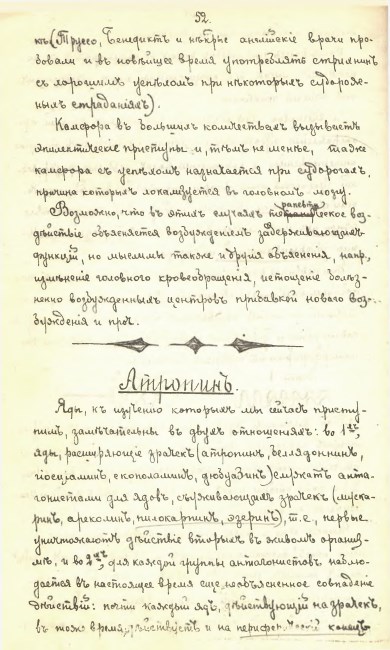 52.
къ (Труссо, Бенедиктъ и нѣкрые англiйскiе врачи про-
бовали и въ новѣйшее время употреблять стрихнинъ
съ хорошимъ успѣхомъ при нѣкоторыхъ судорож-
ныхъ страданiяхъ).
Камфора въ большихъ количествахъ вызываетъ
эпилептическiе приступы и, тѣмъ не менѣе, таже
камфора съ успѣхомъ назначается при судорогахъ,
причина которыхъ локализуется въ головномъ мозгу.
Возможно, что въ этихъ случаяхъ терапевтическое воз-
дѣйствiе объясняется возбужденiемъ задерживающихъ
функцiй, но мыслимы также и другiя объясненiя, напр.,
измѣненiе головного кровеобращенiя, истощенiе болѣз-
ненно возбужденныхъ центровъ прибавкой новаго воз-
бужденiя и проч.
Атропинъ.
Яды, къ изученiю которыхъ мы сейчасъ присту-
пимъ, замѣчательны въ двухъ отношенiяхъ: во 1хъ,
яды, расширяющiе зрачекъ (атропинъ, белладоннинъ,
гiосцiаминъ, скополаминъ, дюбуазинъ) служатъ анта-
гонистами для ядовъ, съуживающихъ зрачекъ (муска-
ринъ, ареколинъ, пилокарпинъ, эзеринъ), т.е., первые
уничтожаютъ дѣйствiе вторыхъ въ живомъ организ-
мѣ, и во 2хъ, для каждой группы антагонистовъ наблю-
дается въ настоящее время еще необъясненное совпаденiе
дѣйствiй: почти каждый ядъ, дѣйствующiй на зрачекъ,
въ тоже время дѣйствуетъ и на периферическiй конецъ